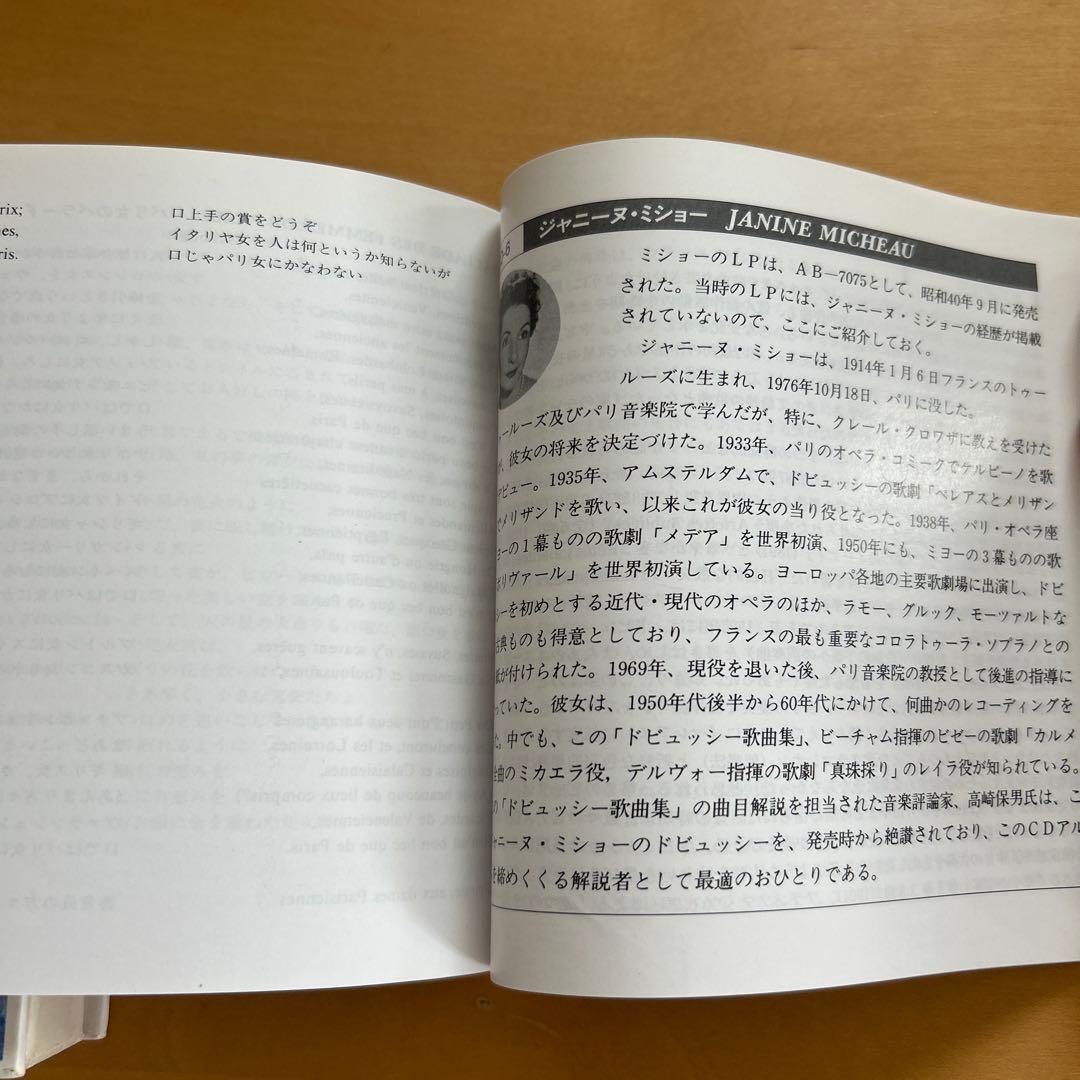 rix;
nes,
ris.
口上手の賞をどうぞ
イタリヤ女を人は何というか知らないが
口じゃパリ女にかなわない
-6
ジャニーヌ・ミショー JANINE MICHEAU
ミショーのLPは、AB—7075として、昭和40年9月に発売
された。当時のLPには、ジャニーヌ・ミショーの経歴が掲載
されていないので、ここにご紹介しておく。
ジャニーヌ・ミショーは、1914年1月6日フランスのトゥー
ルーズに生まれ、1976年10月18日、パリに没した。
ールーズ及びパリ音楽院で学んだが、特に、クレール・クロワザに教えを受けた
、彼女の将来を決定づけた。1933年、パリのオペラ・コミークでテルビーノを歌
ビュー。1935年、アムステルダムで、ドビュッシーの歌劇「ペレアスとメリザン
でメリザンドを歌い、以来これが彼女の当り役となった。1938年、パリ・オペラ座
ョーの1幕ものの歌劇「メデア」を世界初演、1950年にも、ミヨーの3幕ものの歌
ボリヴァール」を世界初演している。ヨーロッパ各地の主要歌劇場に出演し、ドビ
シーを初めとする近代・現代のオペラのほか、ラモー、グルック、モーツァルトな
古典ものも得意としており、フランスの最も重要なコロラトゥーラ・ソプラノとの
が付けられた。1969年、現役を退いた後、パリ音楽院の教授として後進の指導に
っていた。彼女は、1950年代後半から60年代にかけて、何曲かのレコーディングを
。中でも、この「ドビュッシー歌曲集」、ビーチャム指揮のビゼーの歌劇「カルメ
全曲のミカエラ役，デルヴォー指揮の歌劇「真珠採り」のレイラ役が知られている。
の「ドビュッシー歌曲集」の曲目解説を担当された音楽評論家、高崎保男氏は、こ
ャニーヌ・ミショーのドビュッシーを、発売時から絶讃されており、このCDアル
を締めくくる解説者として最適のおひとりである。